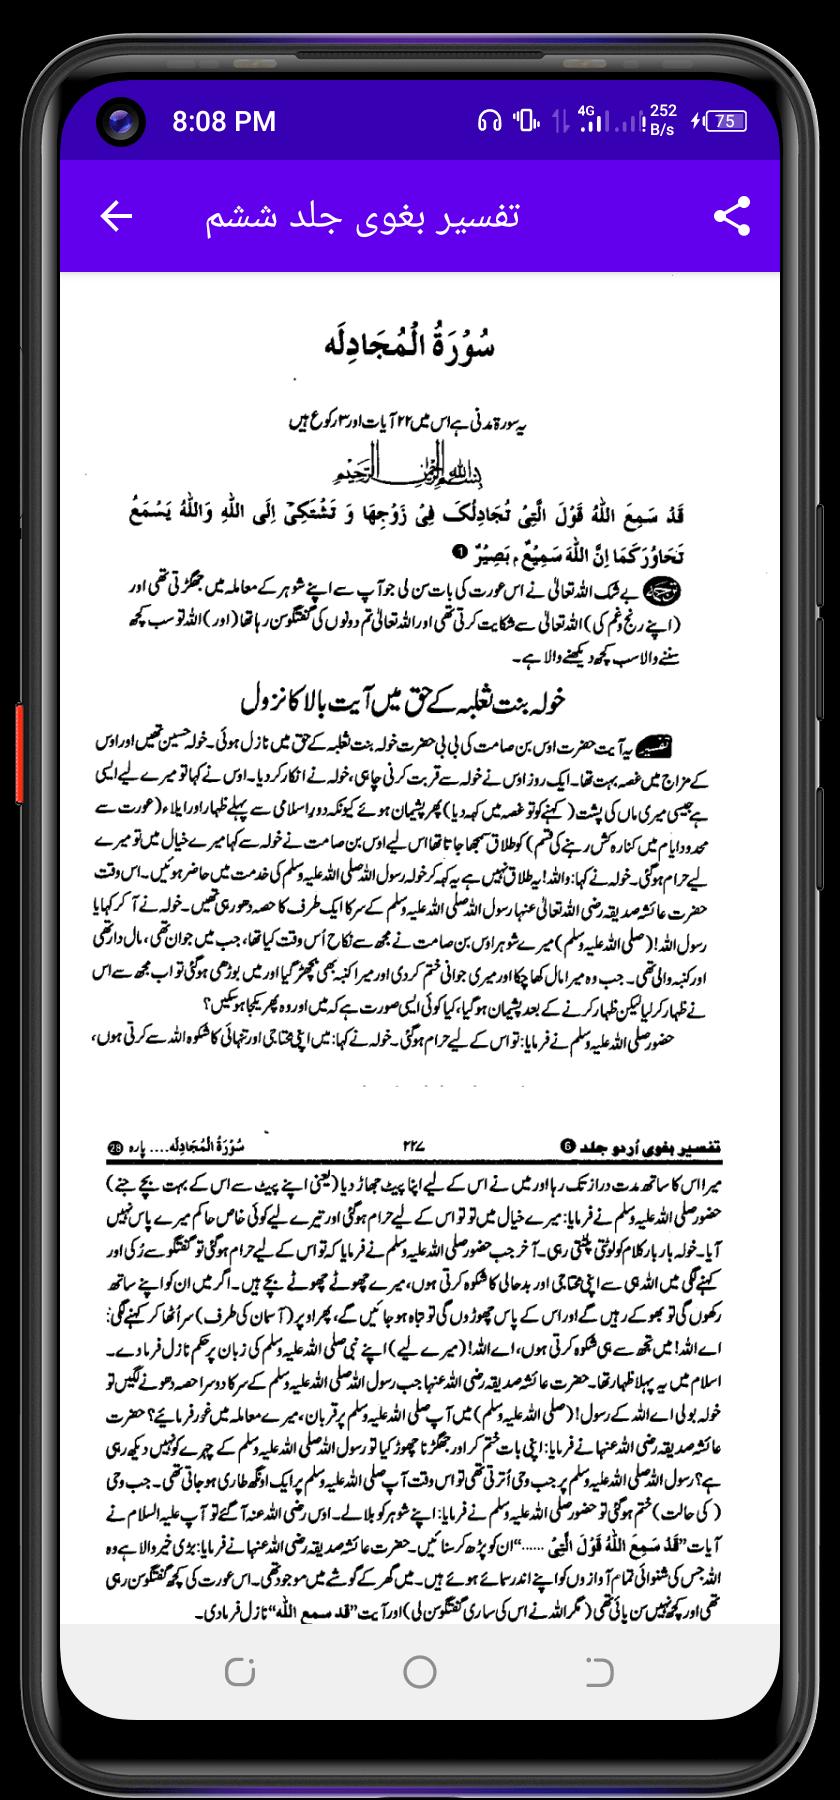 8:08 PM
4G
252 B/s
75
تفسیر بغوی جلد ششم
سُوْرَةُ الْمُجَادِلَه
یہ سورۃ مدنی ہے اس میں ۲۲ آیات اور ۳ رکوع ہیں
بسم الله الرحمن الرحيم
قَدْ سَمِعَ اللّٰهُ قَوْلَ الَّتِیْ تُجَادِلُکَ فِیْ زَوْجِهَا وَ تَشْتَکِیْٓ اِلَی اللّٰهِ وَاللّٰهُ یَسْمَعُ
تَحَاوُرَکُمَا اِنَّ اللّٰهَ سَمِیْعٌ ۢ بَصِیْرٌ ❶
ترجمہ بے شک اللہ تعالیٰ نے اس عورت کی بات سن لی جو آپ سے اپنے شوہر کے معاملہ میں جھگڑتی تھی اور
(اپنے رنج و غم کی) اللہ تعالیٰ سے شکایت کرتی تھی اور اللہ تعالیٰ تم دونوں کی گفتگو سن رہا تھا (اور) اللہ تو سب کچھ
سننے والا سب کچھ دیکھنے والا ہے۔
خولہ بنت ثعلبہ کے حق میں آیت بالا کا نزول
تفسیر یہ آیت حضرت اوس بن صامت کی بی بی حضرت خولہ بنت ثعلبہ کے حق میں نازل ہوئی۔ خولہ حسین تھیں اور اوس
کے مزاج میں غصہ بہت تھا۔ ایک روز اوس نے خولہ سے قربت کرنی چاہی، خولہ نے انکار کر دیا۔ اوس نے کہا تو میرے لیے ایسی
ہے جیسی میری ماں کی پشت (کہنے کو تو غصہ میں کہہ دیا) پھر پشیمان ہوئے کیونکہ دور اسلامی سے پہلے ظہار اور ایلاء (عورت سے
محدود ایام میں کنارہ کش رہنے کی قسم) کو طلاق سمجھا جاتا تھا اس لیے اوس بن صامت نے خولہ سے کہا میرے خیال میں تو میرے
لیے حرام ہوگئی۔ خولہ نے کہا: واللہ! یہ طلاق نہیں ہے یہ کہہ کر خولہ رسول اللہ صلی اللہ علیہ وسلم کی خدمت میں حاضر ہوئیں۔ اس وقت
حضرت عائشہ صدیقہ رضی اللہ تعالیٰ عنہا رسول اللہ صلی اللہ علیہ وسلم کے سر کا ایک طرف کا حصہ دھو رہی تھیں۔ خولہ نے آ کر کہا یا
رسول اللہ! (صلی اللہ علیہ وسلم) میرے شوہر اوس بن صامت نے مجھ سے نکاح اُس وقت کیا تھا، جب میں جوان تھی، مال دار تھی
اور کنبہ والی تھی۔ جب وہ میرا مال کھا چکا اور میری جوانی ختم کر دی اور میرا کنبہ بھی بچھڑ گیا اور میں بوڑھی ہوگئی تو اب مجھ سے اس
نے ظہار کر لیا لیکن ظہار کرنے کے بعد پشیمان ہو گیا، کیا کوئی ایسی صورت ہے کہ میں اور وہ پھر یکجا ہو سکیں؟
حضور صلی اللہ علیہ وسلم نے فرمایا: تو اس کے لیے حرام ہوگئی۔ خولہ نے کہا: میں اپنی محتاجی اور تنہائی کا شکوہ اللہ سے کرتی ہوں،
تفسیر بغوی اُردو جلد ❻ ۲۲۷ سُوْرَةُ الْمُجَادِلَه.... پارہ 28
میرا اس کا ساتھ مدت دراز تک رہا اور میں نے اس کے لیے اپنا پیٹ جھاڑ دیا (یعنی اپنے پیٹ سے اس کے بہت بچے جنے)
حضور صلی اللہ علیہ وسلم نے فرمایا: میرے خیال میں تو تو اس کے لیے حرام ہوگئی اور تیرے لیے کوئی خاص حاکم میرے پاس نہیں
آیا۔ خولہ بار بار کلام کو لوٹتی پلٹتی رہی۔ آخر جب حضور صلی اللہ علیہ وسلم نے فرمایا کہ تو اس کے لیے حرام ہوگئی تو گفتگو سے رُکی اور
کہنے لگی میں اللہ ہی سے اپنی محتاجی اور بدحالی کا شکوہ کرتی ہوں، میرے چھوٹے چھوٹے بچے ہیں۔ اگر میں ان کو اپنے ساتھ
رکھوں گی تو بھوکے رہیں گے اور اس کے پاس چھوڑوں گی تو تباہ ہو جائیں گے، پھر اوپر (آسمان کی طرف) سر اُٹھا کر کہنے لگی:
اے اللہ! میں تجھ سے ہی شکوہ کرتی ہوں، اے اللہ! (میرے لیے) اپنے نبی صلی اللہ علیہ وسلم کی زبان پر حکم نازل فرما دے۔
اسلام میں یہ پہلا ظہار تھا۔ حضرت عائشہ صدیقہ رضی اللہ عنہا جب رسول اللہ صلی اللہ علیہ وسلم کے سر کا دوسرا حصہ دھونے لگیں تو
خولہ بولی اے اللہ کے رسول! (صلی اللہ علیہ وسلم) میں آپ صلی اللہ علیہ وسلم پر قربان، میرے معاملہ میں غور فرمائیے؟ حضرت
عائشہ صدیقہ رضی اللہ عنہا نے فرمایا: اپنی بات ختم کر اور جھگڑنا چھوڑ کیا تو رسول اللہ صلی اللہ علیہ وسلم کے چہرے کو نہیں دیکھ رہی
ہے؟ رسول اللہ صلی اللہ علیہ وسلم پر جب وحی اُترتی تھی تو اس وقت آپ صلی اللہ علیہ وسلم پر ایک اونگھ طاری ہو جاتی تھی۔ جب وحی
(کی حالت) ختم ہوگئی تو حضور صلی اللہ علیہ وسلم نے فرمایا: اپنے شوہر کو بلا لے۔ اوس رضی اللہ عنہ آ گئے تو آپ علیہ السلام نے
آیات "قَدْ سَمِعَ اللّٰهُ قَوْلَ الَّتِیْ ......" ان کو پڑھ کر سنائیں۔ حضرت عائشہ صدیقہ رضی اللہ عنہا نے فرمایا: بڑی خیر والا ہے وہ
اللہ جس کی شنوائی تمام آوازوں کو اپنے اندر سمائے ہوئے ہیں۔ میں گھر کے گوشے میں موجود تھی۔ اس عورت کی کچھ گفتگو سن رہی
تھی اور کچھ نہیں سن پائی تھی (مگر اللہ نے اس کی ساری گفتگو سن لی) اور آیت "قد سمع اللّٰه" نازل فرما دی۔